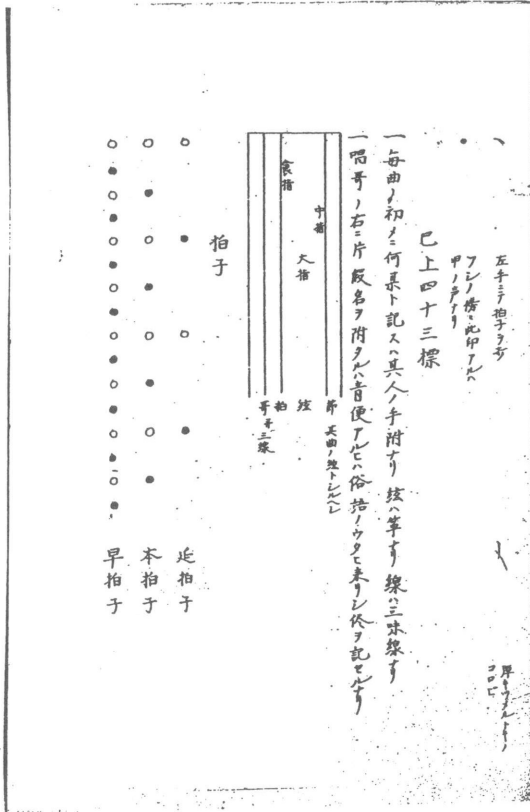 左手ニテ拍子ヲ打
フシノ傍ニ此印アルハ
甲ノ声ナリ
コロビ
已上四十三標
一毎曲ノ初メニ何某ト記スハ其人ノ手附ナリ 絃ハ箏ナリ 線ハ三味線ナリ
一唱哥ノ右ニ片假名ヲ附タルハ音便アルヒハ俗語ノウタヒ来リシ侭ヲ記セルナリ
節 其曲ノ トシルヘシ
中指
大指 絃
食指
拍
哥 三線
拍子
延拍子
本拍子
早拍子